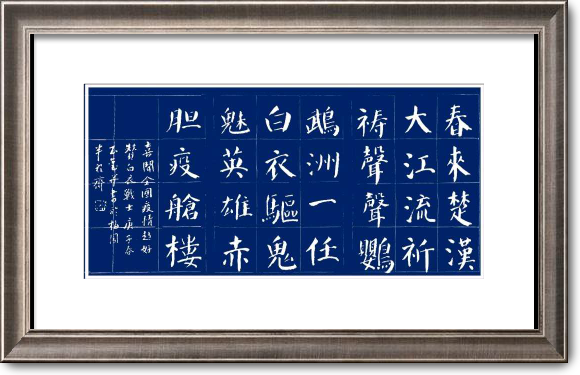 春來楚漢
大江流祈
祷聲聲鸚
鵡洲一任
白衣驅鬼
魅英雄赤
胆疫艙楼
喜聞全國疫情趋好
贊白衣戰士庚子春